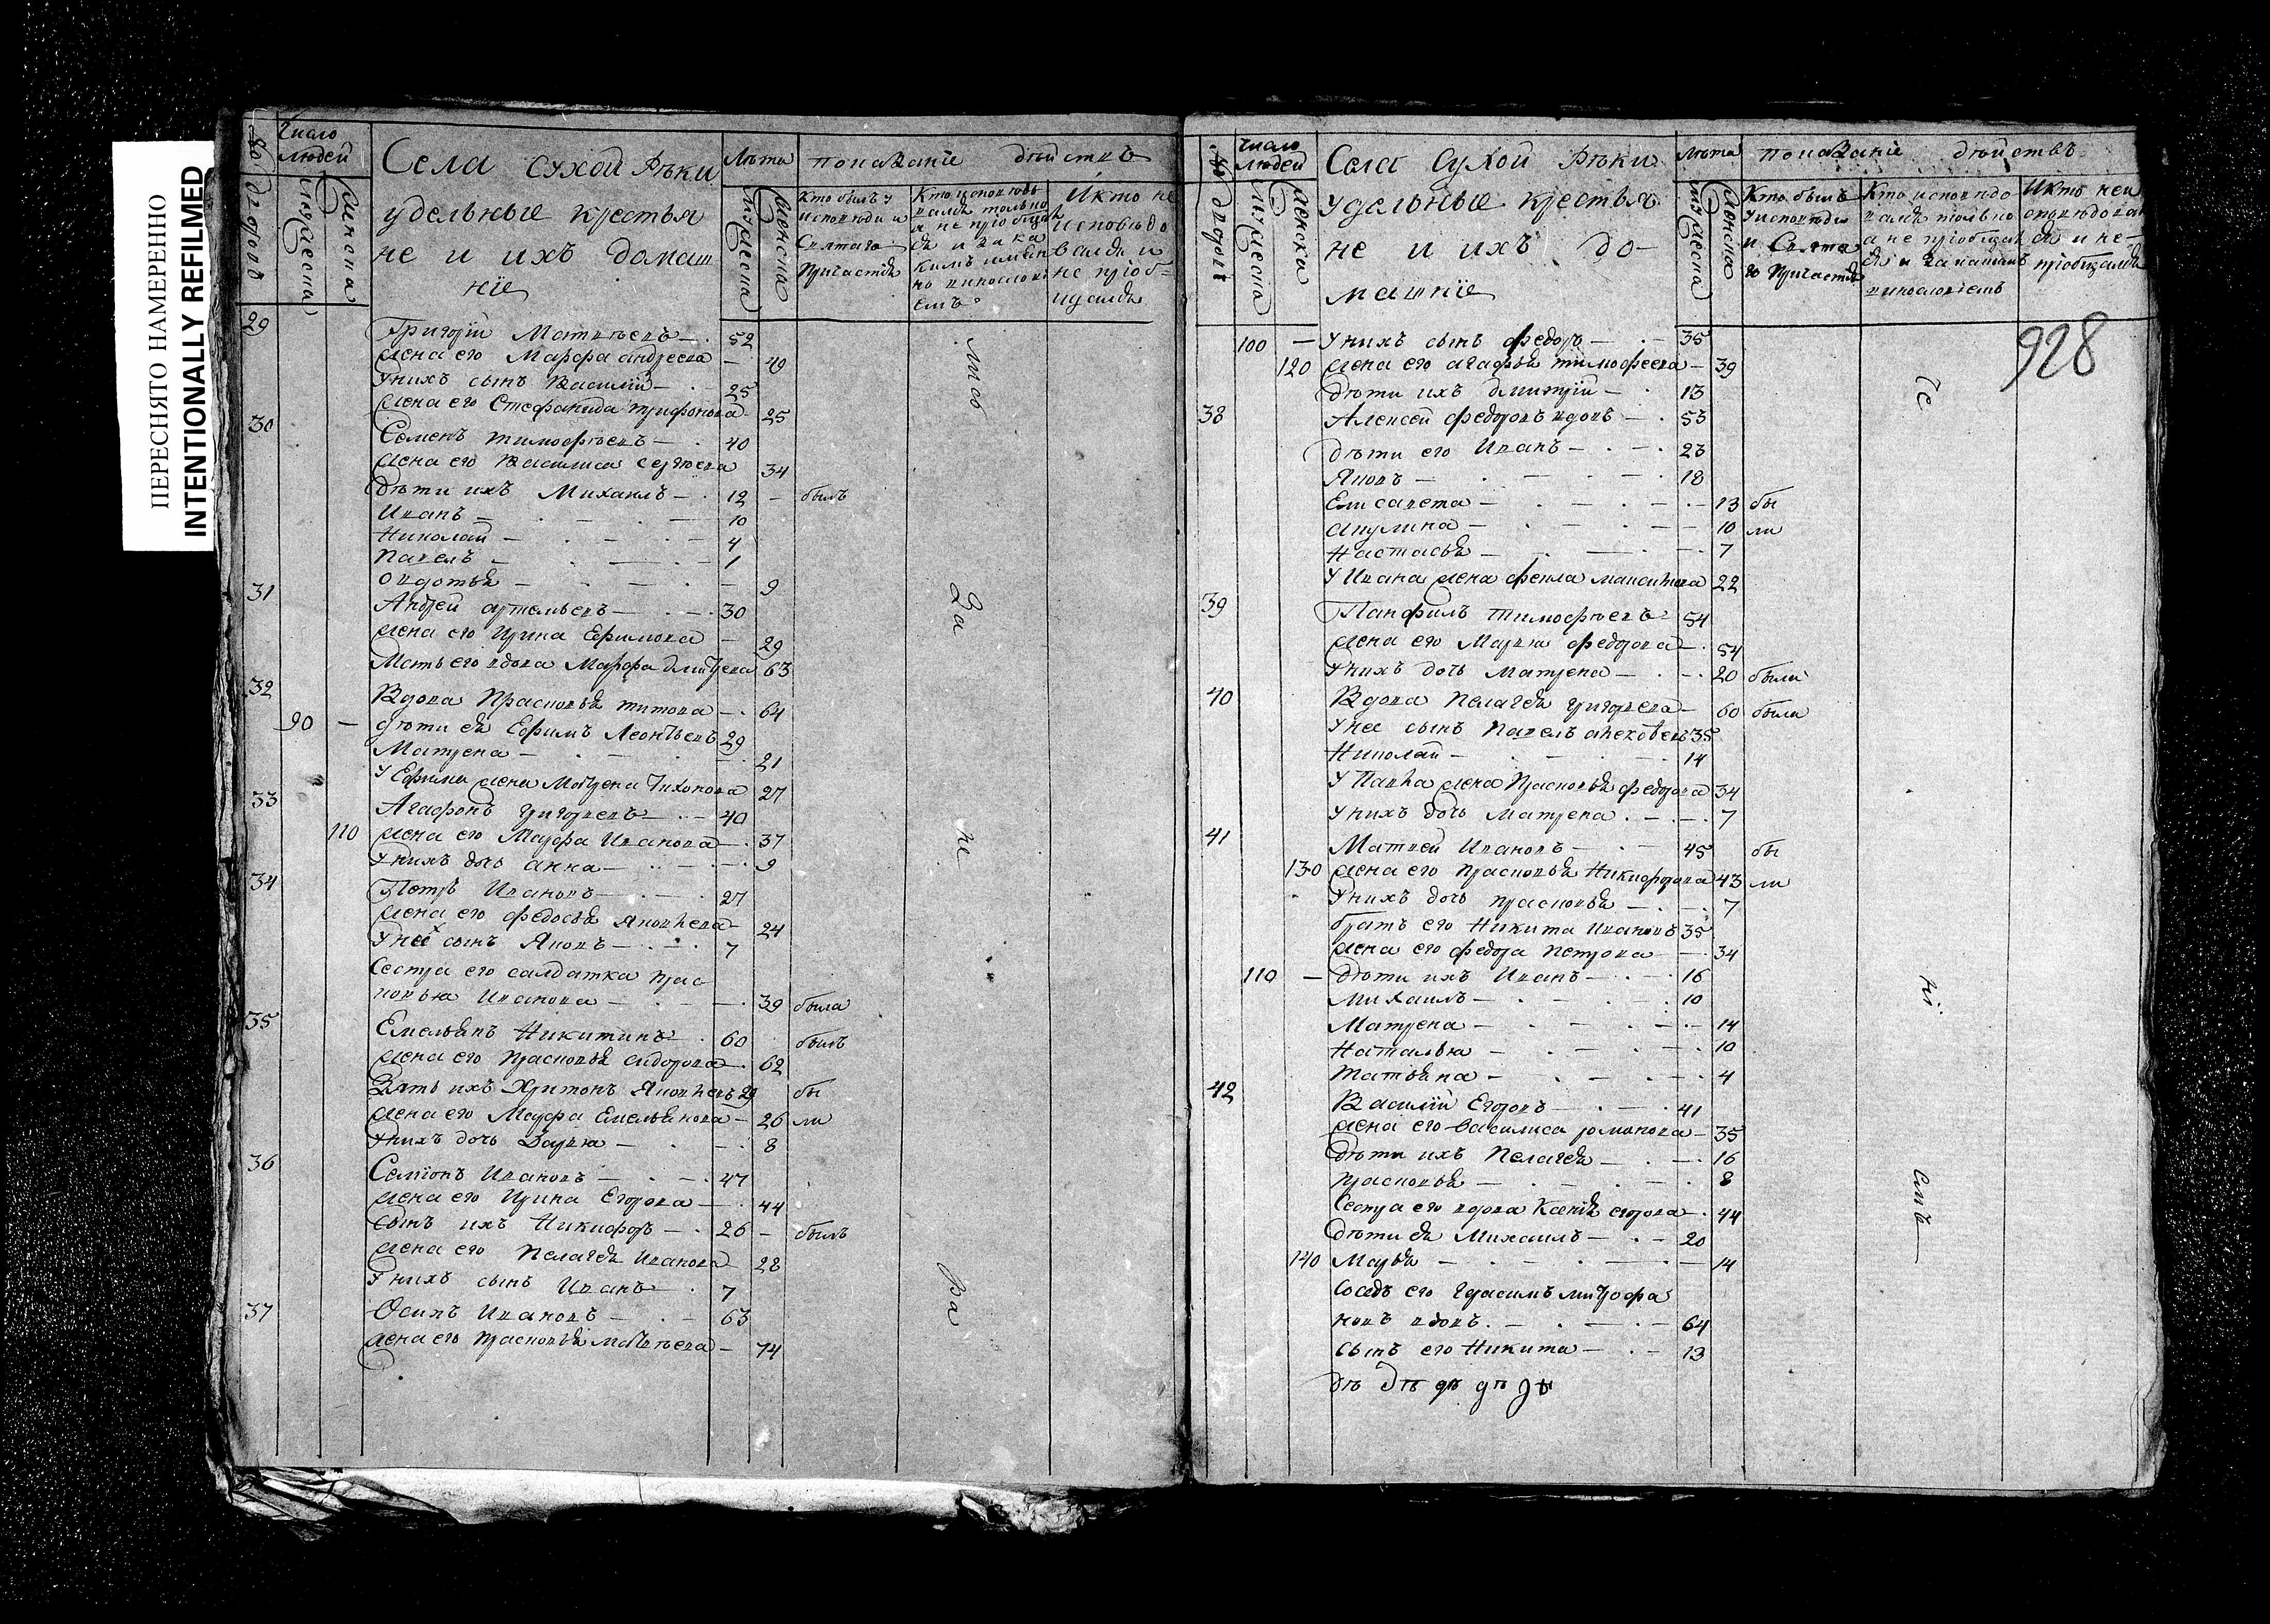 ПЕРЕСНЯТО НАМЕРЕННО
INTENTIONALLY REFILMED
Число людей
Села сухой Рѣки
удельные крестья
не и ихъ домаш
ніе
Лѣта
показаніе действъ
Кто былъ у исповѣди и Святаго Причастія
Кто исповѣдовался только а не пріобщался и за какимъ именно винословіемъ
И кто не исповѣдовался и не пріобщался
29 Григорій Матвѣевъ 52
жена его Марфа андреева 49
У нихъ сынъ Василій 25
жена его Стефанида трифонова 25
30 Семенъ тимофѣевъ 40
жена его Василиса сергѣева 34
дѣти ихъ Михаилъ 12 былъ
Иванъ 10
Николай 4
Павелъ 1
овдотья 9
31 Андрей артемьевъ 30
жена его Ирина Ефимова 29
Мать его вдова Марфа дмитрева 63
32 Вдова Прасковья титова 64
90 дѣти ея Ефимъ Леонтьевъ 29
Матрена 21
У Ефима жена Матрена Тихонова 27
33 Агафонъ григорьевъ 40
110 жена его Марфа Иванова 37
У нихъ дочь анна 9
34 Петръ Ивановъ 27
жена его федосья Яковлева 24
У нея сынъ Яковъ 7
Сестра его салдатка прас
ковья Иванова 39 была
35 Емельянъ Никитинъ 60 былъ
жена его Прасковья сидорова 62
Зять ихъ Харитонъ Яковлевъ 29 бы
жена его Марфа Емельянова 26 ли
У нихъ дочь Варва 8
36 Семіонъ Ивановъ 47
жена его Ирина Егорова 44
Сынъ ихъ Никифоръ 26 былъ
жена его Пелагея Иванова 28
У нихъ сынъ Иванъ 7
37 Осипъ Ивановъ 63
жена его Прасковья Матвѣева 74
Число людей
Села Сухой Рѣки
удельные крестья
не и ихъ до-
машніе
Лѣта
показаніе действъ
Кто былъ у исповѣди и Святаго Причастія
Кто исповѣдовался только а не пріобщался и за какимъ винословіемъ
И кто не исповѣдовался и не пріобщался
928
100 У нихъ сынъ федоръ 35
120 жена его агафья тимофеева 39
дѣти ихъ дмитрій 13
38 Алексей федоровъ вдовъ 53
дѣти его Иванъ 23
Яковъ 18
Елисавета 13 бы
акулина 10 ли
Настасья 7
У Ивана жена фекла 22
39 Панфилъ тимофѣевъ 54
жена его Марья федорова 54
У нихъ дочь матрена 20 были
40 Вдова Пелагея григорьева 60 была
У нея сынъ Павелъ 35
Николай 14
У Павла жена Прасковья федорова 34
У нихъ дочь матрена 7
41 Матвей Ивановъ 45 бы
130 жена его прасковья Никифорова 43 ли
У нихъ дочь прасковья 7
братъ его Никита Ивановъ 35
жена его федора петрова 34
110 дѣти ихъ Иванъ 16
Михаилъ 10
Матрена 14
Наталья 10
татьяна 4
42 Василій Егоровъ 41
жена его Василиса романова 35
дѣти ихъ Пелагея 16
прасковья 8
Сестра его вдова Ксенія егорова 44
дѣти ея Михаилъ 20
140 Марья 14
Соседъ его Герасимъ митрофа
новъ вдовъ 64
сынъ его Никита 13